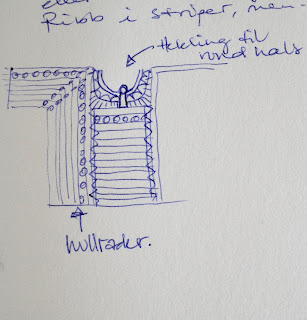 eller
Ribb i striper, men-
Hekling til
rund hals
hullrader.